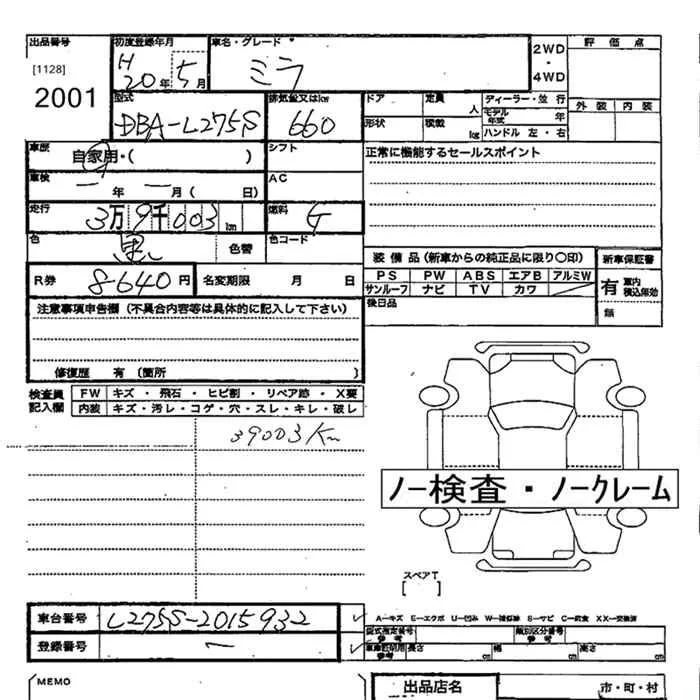 出品番号 初度登録年月 車名・グレード 2WD・4WD 評価点
[1128] H20年5月 ミラ
2001 型式 排気量又はkw ドア 定員 人 ディーラー・並行 外装 内装
DBA-L275S 660 形状 積載 kg モデル年式 年
ハンドル 左・右
車歴 自家用・( ) シフト 正常に機能するセールスポイント
車検 年 月( 日) AC
走行 3万9千003km 燃料 G
色 黒 色替 色コード
装備品(新車からの純正品に限り〇印) 新車保証書
R券 8-640円 名変期限 月 日 PS PW ABS エアB アルミW 有 車内積込有効
サンルーフ ナビ TV カワ
注意事項申告欄(不具合内容等は具体的に記入して下さい) 後日品 無
修復歴 有(箇所 )
検査員記入欄 FW キズ・飛石・ヒビ割・リペア跡・X要
内装 キズ・汚レ・コゲ・穴・スレ・キレ・破レ
39003Km
ノー検査・ノークレーム
スペアT
[ ]
車台番号 L275S-2015932 A-キズ E-エクボ U-凹み W-補修跡 S-サビ C-腐食 XX-交換済
型式指定番号 参考 類別区分番号 参考
登録番号 ー 車庫証明用参考 長さ cm 幅 cm 高さ cm
MEMO 出品店名 市・町・村